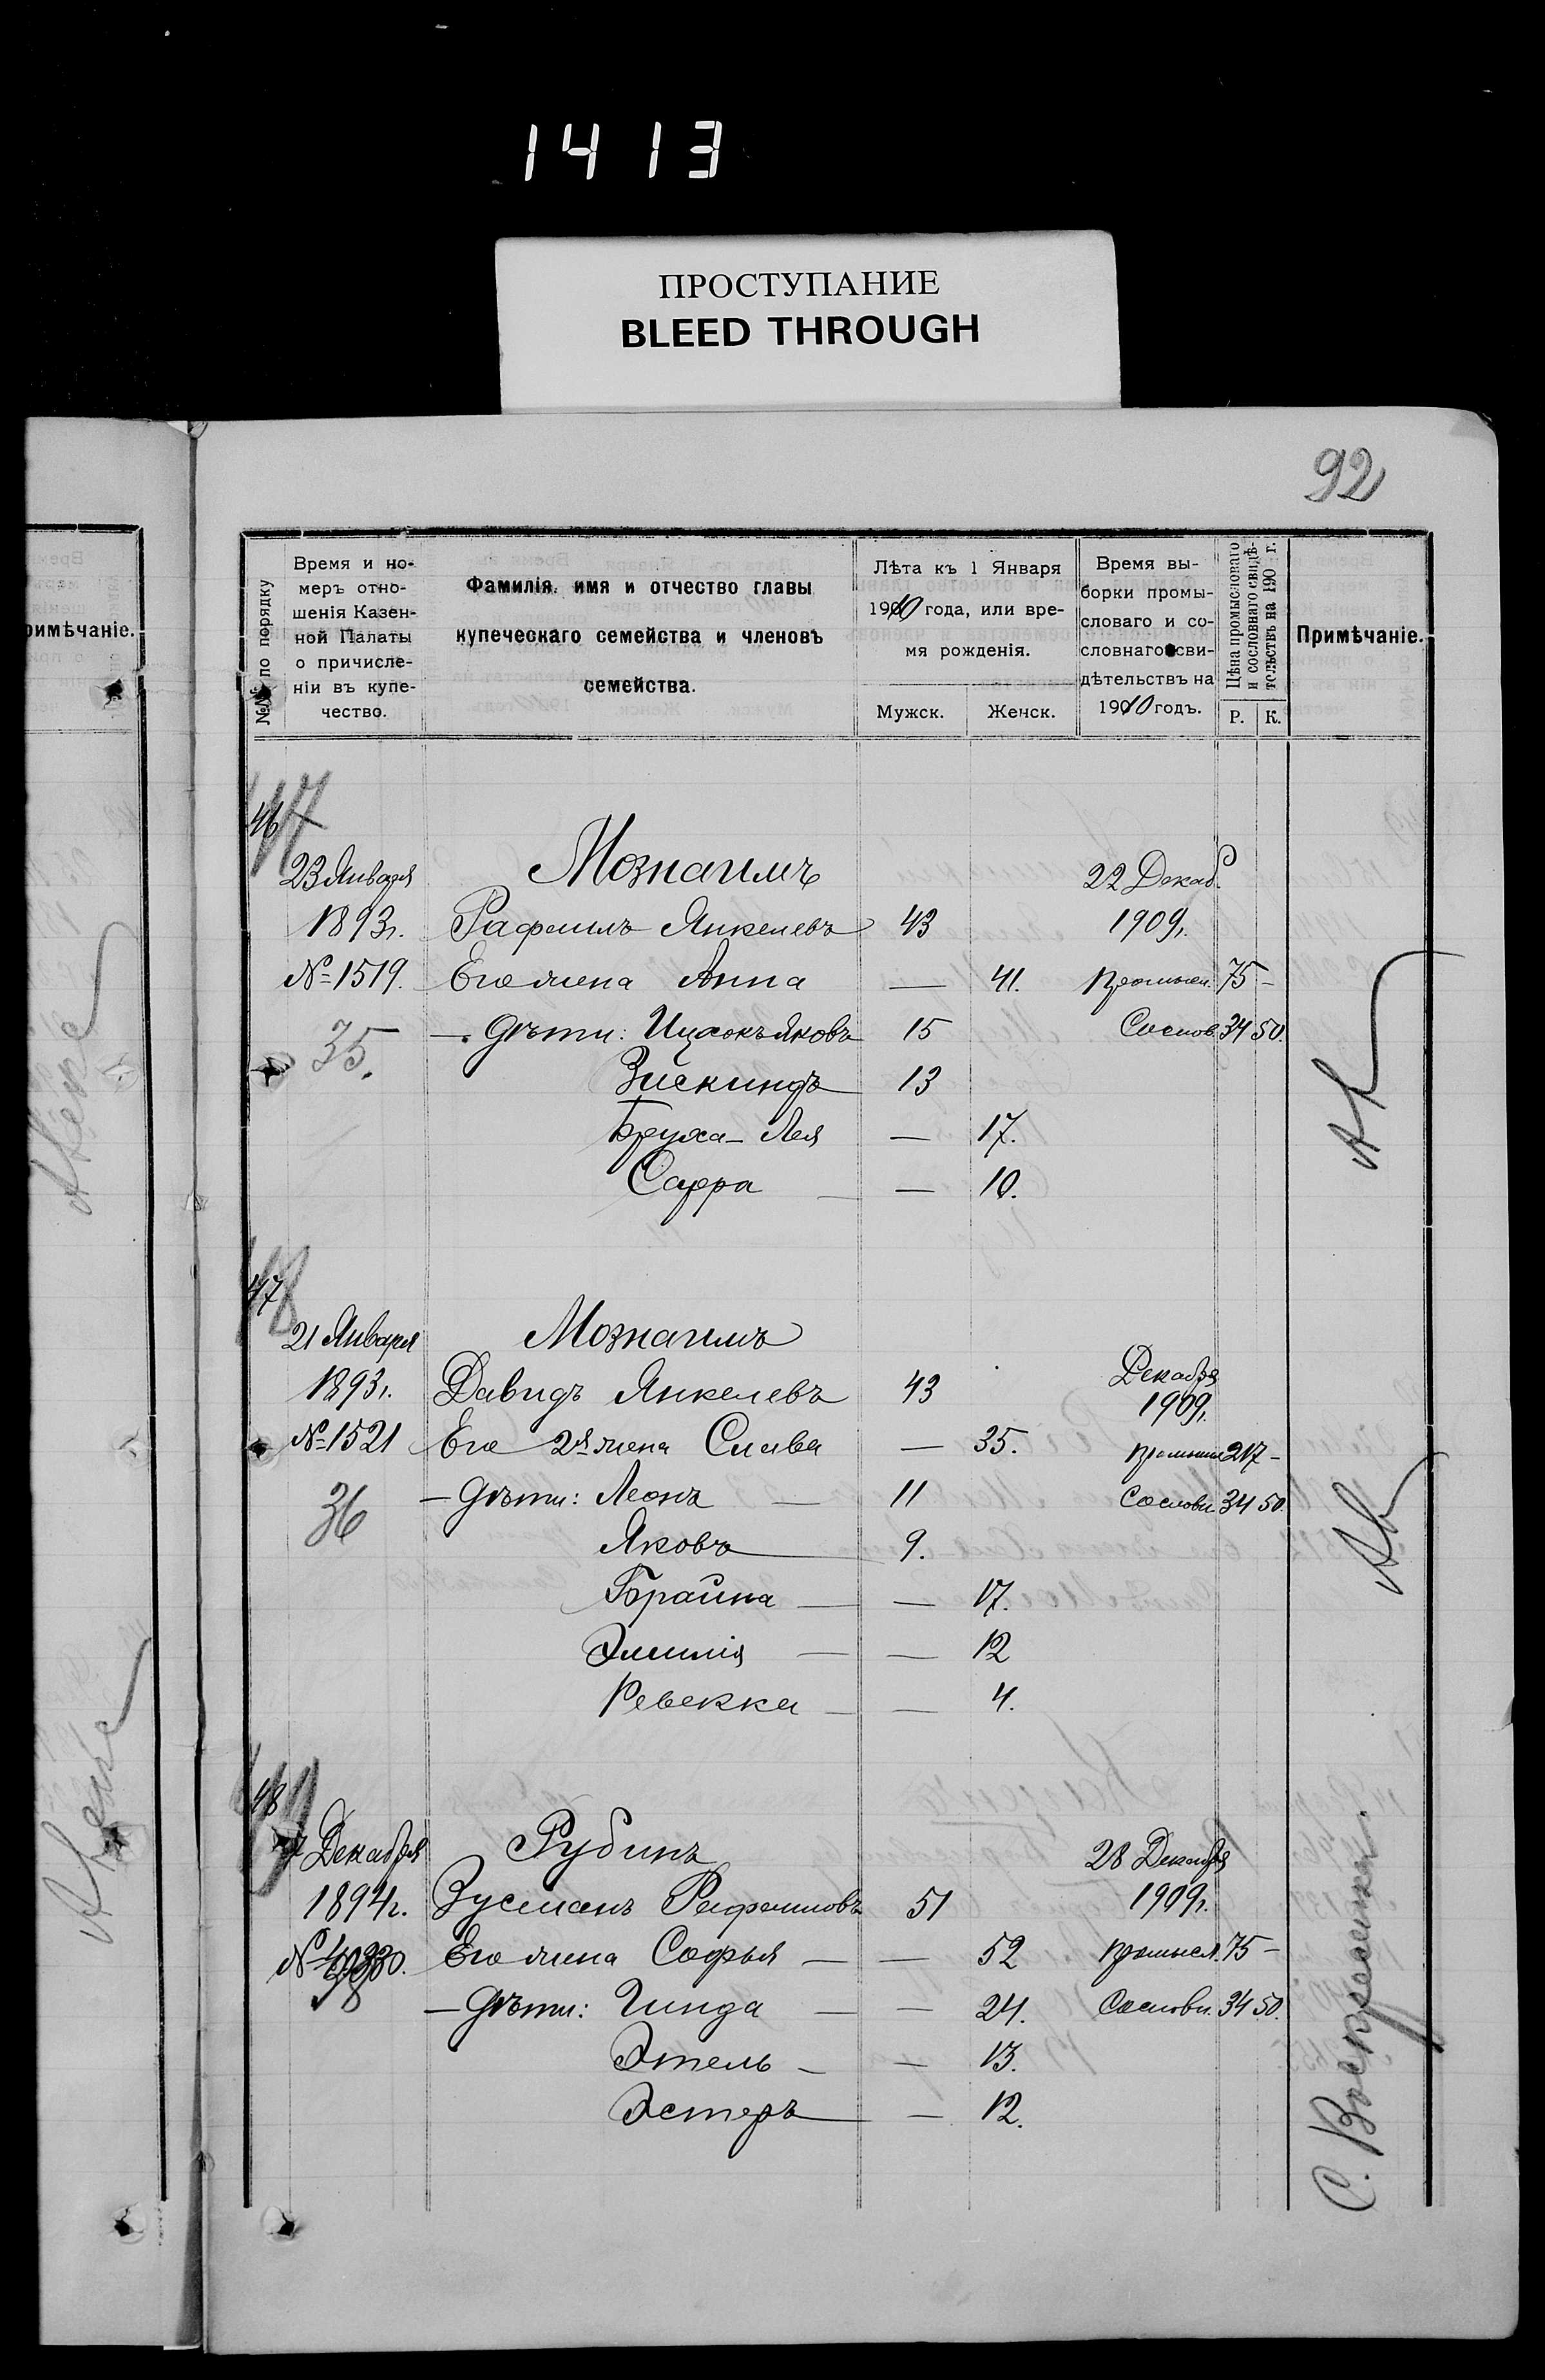 1413
ПРОСТУПАНИЕ
BLEED THROUGH
92
римѣчаніе.
№№ по порядку
Время и но-
меръ отно-
шенія Казен-
ной Палаты
о причисле-
ніи въ купе-
чество.
Фамилія, имя и отчество главы
купеческаго семейства и членовъ
семейства.
Лѣта къ 1 Января
1910 года, или вре-
мя рожденія.
Мужск.
Женск.
Время вы-
борки промы-
словаго и со-
словнаго сви-
дѣтельствъ на
1910 годъ.
Цѣна промысловаго
и сословнаго свидѣ-
тельствъ на 190 г.
Р. К.
Примѣчаніе.
46
47
23 Января Мознаимъ 22 Декаб.
1893г. Рафаилъ Янкелевъ 43 1909г.
№ 1519. Его жена Анна — 41. Промысл. 75 -
35. - Дѣти: Ицхокъ Яковъ 15 Сослов. 34 50.
Зискиндъ 13
Бруха-Лея — 17.
Сарра — 10.
47
48
21 Января Мознаимъ
1893г. Давидъ Янкелевъ 43 Декабря
1909г.
№ 1521 Его 2я жена Слава — 35. Промысл 217 -
36 - Дѣти: Леонъ — 11 Сословн. 34 50.
Яковъ 9.
Брайна — — 17.
Эмилія — — 12
Ревекка — — 4.
48
49
Декабря Рубинъ 28 Декабря
1894г. Зусманъ Рафаиловъ 51 1909г.
Его жена Софья — — 52 Промысл. 75 -
38 - Дѣти: Гинда — — 24. Сословн. 34 50.
Этель — — 13.
Эстеръ — 12.